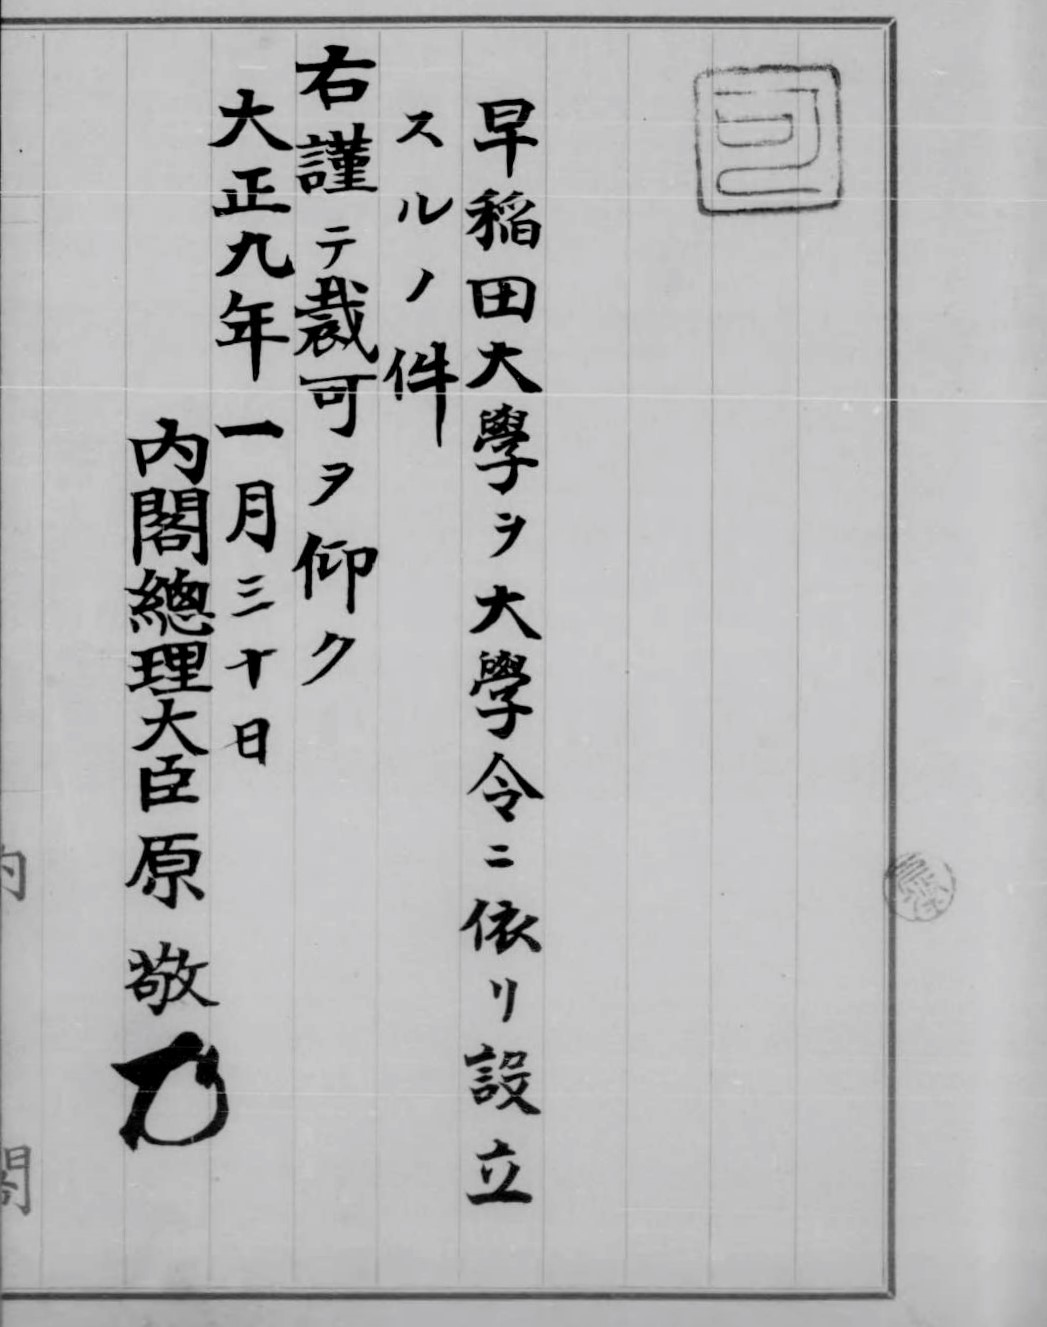 可
早稲田大學ヲ大學令ニ依リ設立
スルノ件
右謹テ裁可ヲ仰ク
大正九年一月三十日
内閣總理大臣原敬
内閣